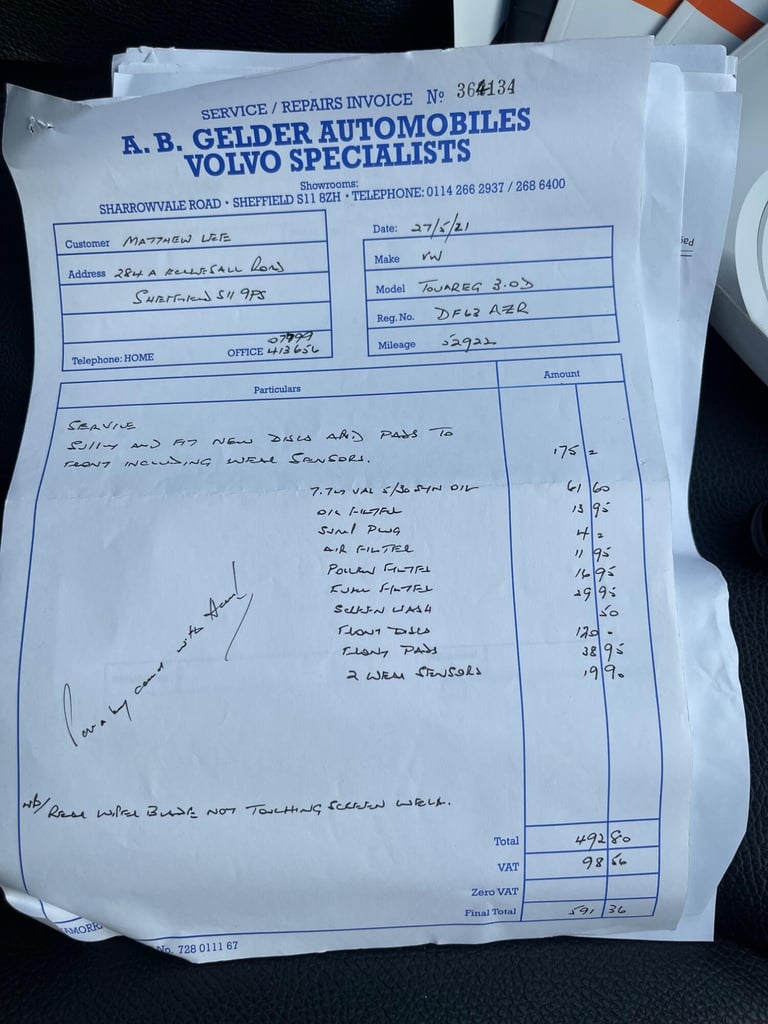 SERVICE / REPAIRS INVOICE Nº 364134
A. B. GELDER AUTOMOBILES
VOLVO SPECIALISTS
Showrooms:
SHARROWVALE ROAD • SHEFFIELD S11 8ZH • TELEPHONE: 0114 266 2937 / 268 6400
Customer MATTHEW LEE
Address 284 A ECCLESALL ROAD
SHEFFIELD S11 9PS
Telephone: HOME OFFICE 07799 413656
Date: 27/5/21
Make VW
Model TOUAREG 3.0D
Reg. No. DF63 AZR
Mileage 52922
Particulars Amount
SERVICE
SUPPLY AND FIT NEW DISCS AND PADS TO
FRONT INCLUDING WEAR SENSORS. 175 =
7.7 LT VAL 5/30 SYN OIL 61 60
OIL FILTER 13 95
SUMP PLUG 4 =
AIR FILTER 11 95
POLLEN FILTER 16 95
FUEL FILTER 29 95
SCREEN WASH 50
FRONT DISCS 120 -
FRONT PADS 38 95
2 WEAR SENSORS 19 90
Paid by card with
NB/ REAR WIPER BLADE NOT TOUCHING SCREEN WELL.
Total 492 80
VAT 98 56
Zero VAT
Final Total 591 36
No. 728 0111 67